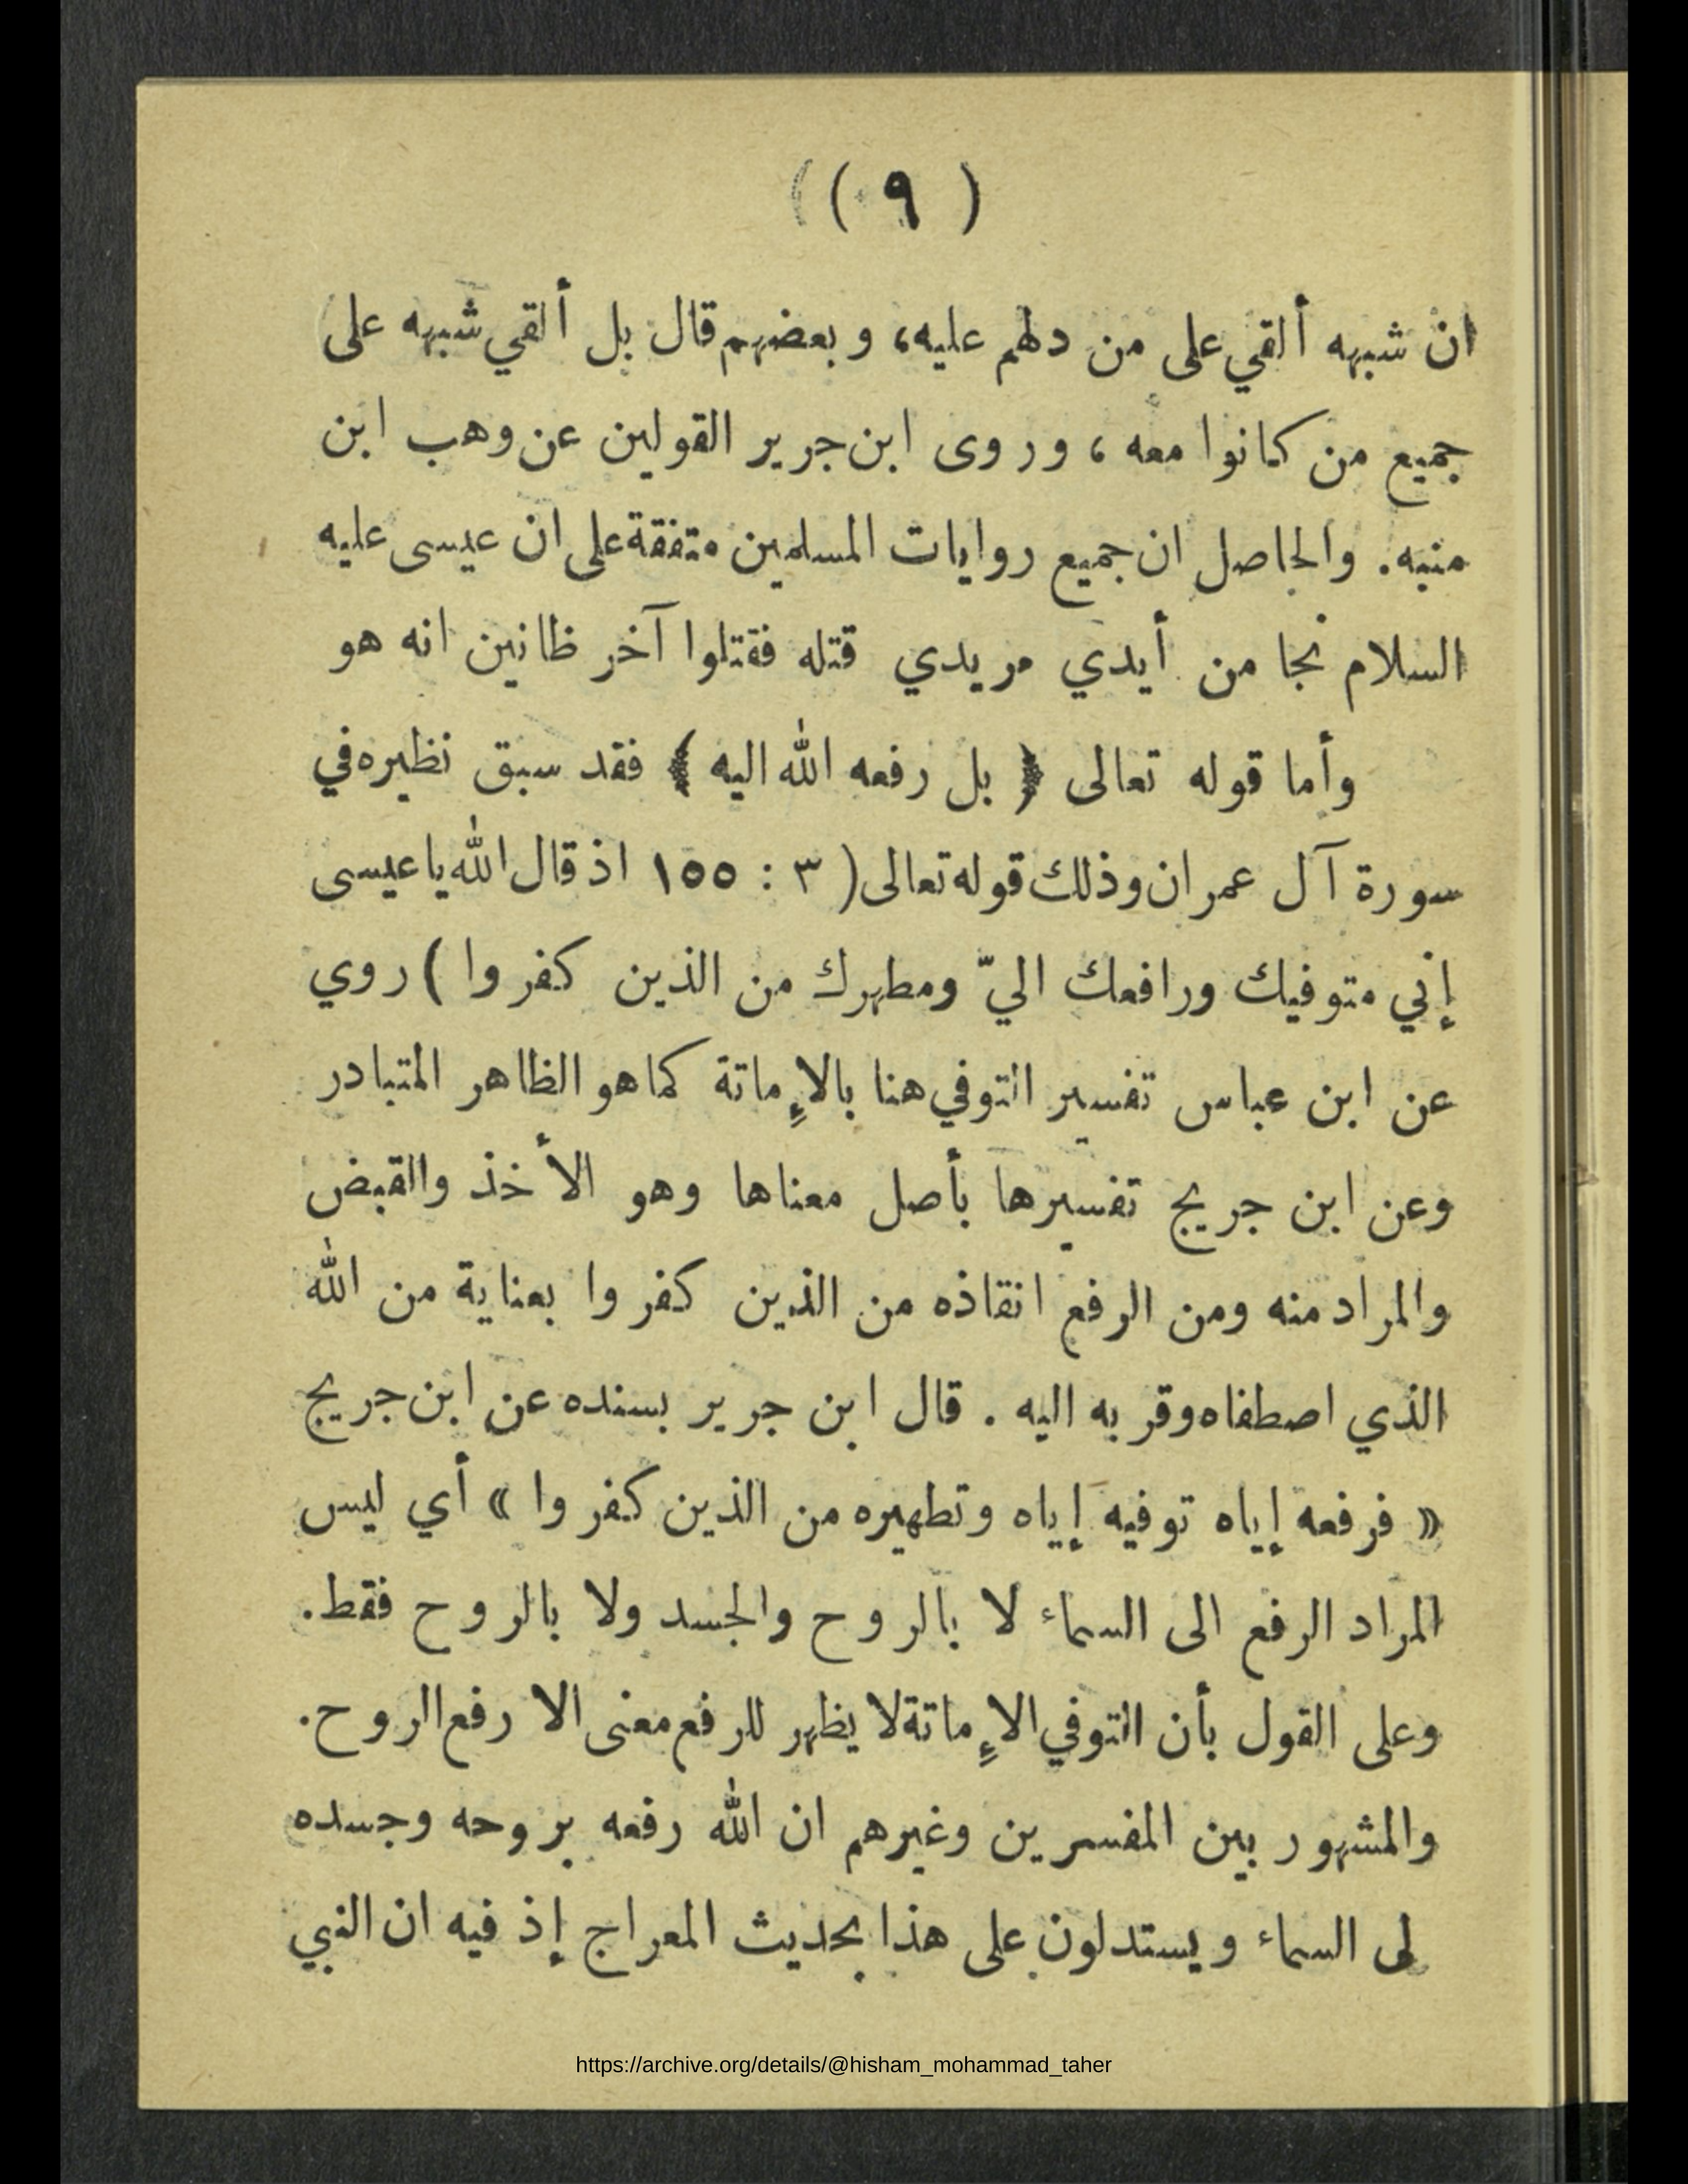 ( ٩ )
ان شبهه ألقي على من دلهم عليه، وبعضهم قال بل ألقي شبهه على
جميع من كانوا معه ، وروى ابن جرير القولين عن وهب ابن
منبه. والحاصل ان جميع روايات المسلمين متفقة على ان عيسى عليه
السلام نجا من أيدي مريدي قتله فقتلوا آخر ظانين انه هو
وأما قوله تعالى ﴿ بل رفعه الله اليه ﴾ فقد سبق نظيره في
سورة آل عمران وذلك قوله تعالى ( ٣ : ١٥٥ اذ قال الله يا عيسى
إني متوفيك ورافعك اليّ ومطهرك من الذين كفروا ) روي
عن ابن عباس تفسير التوفي هنا بالإماتة كما هو الظاهر المتبادر
وعن ابن جريج تفسيرها بأصل معناها وهو الأخذ والقبض
والمراد منه ومن الرفع انقاذه من الذين كفروا بعناية من الله
الذي اصطفاه وقربه اليه . قال ابن جرير بسنده عن ابن جريج
« فرفعه إياه توفيه إياه وتطهيره من الذين كفروا » أي ليس
المراد الرفع الى السماء لا بالروح والجسد ولا بالروح فقط.
وعلى القول بأن التوفي الإماتة لا يظهر للرفع معنى الا رفع الروح.
والمشهور بين المفسرين وغيرهم ان الله رفعه بروحه وجسده
لى السماء ويستدلون على هذا بحديث المعراج إذ فيه ان النبي
https://archive.org/details/@hisham_mohammad_taher